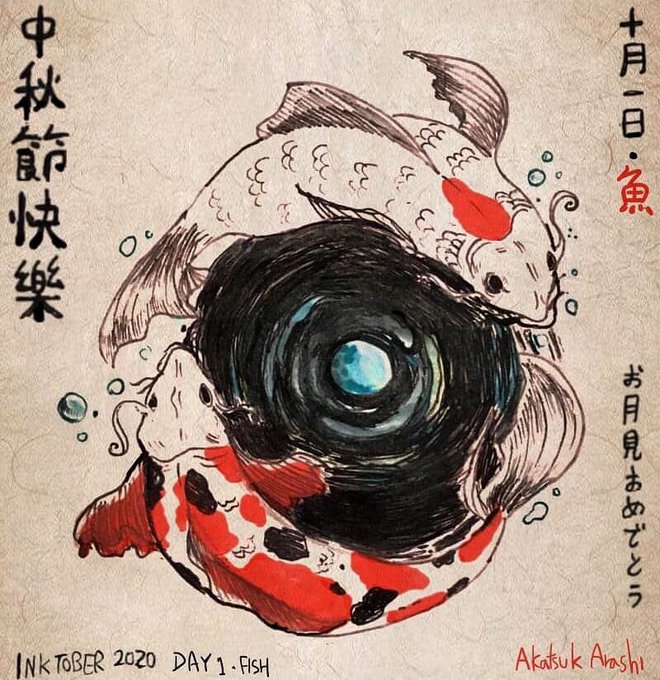 中秋節快樂
十月一日・魚
お月見おめでとう
INKTOBER 2020 DAY 1・FISH
Akatsuk Arashi